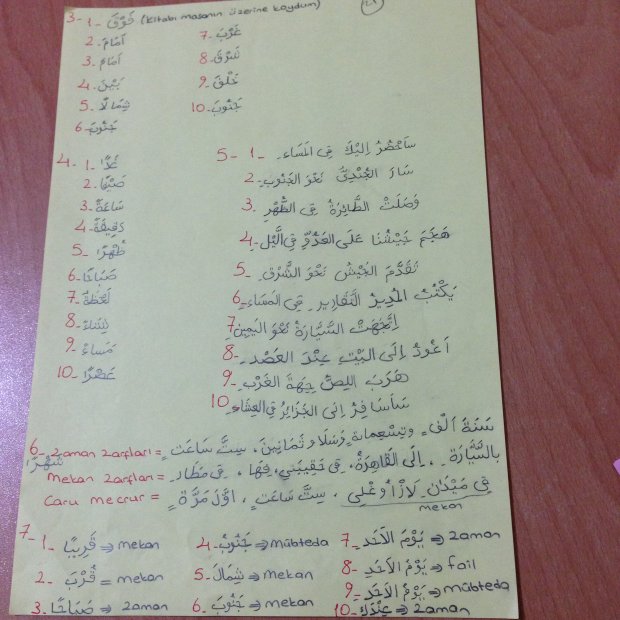 3- 1- فَوْقَ (kitabı masanın üzerine koydum)
2- أَمَامَ
3- أَمَامَ
4- بَيْنَ
5- شِمَالًا
6- جَنُوبَ
7- غَرْبَ
8- شَرْقَ
9- خَلْفَ
10- جَنُوبَ
4- 1- غَدًا
2- صَيْفًا
3- سَاعَةً
4- دَقِيقَةً
5- ظُهْرًا
6- صَبَاحًا
7- لَحْظَةً
8- شِتَاءً
9- مَسَاءً
10- عَصْرًا
5- 1- سَأَحْضُرُ اِلَيْكَ فِي المَسَاءِ
2- سَارَ الجُنْدِيُّ نَحْوَ الجَنُوبِ
3- وَصَلَتْ الطَّائِرَةُ فِي الظُّهْرِ
4- هَجَمَ جَيْشُنَا عَلَى العَدُوِّ فِي الَّيْلِ
5- تَقَدَّمَ الجَيْشُ نَحْوَ الشَّرْقِ
6- يَكْتُبُ المُدِيرُ التَّقَارِيرَ فِي المَسَاءِ
7- اِتَّجَهَتْ السَّيَّارَةُ نَحْوَ اليَمِينِ
8- اَعُودُ اِلَى البَيْتِ عِنْدَ العَصْرِ
9- هَرَبَ اللِّصُّ جِهَةَ الغَرْبِ
10- سَأُسَافِرُ اِلَى الجَزَائِرُ فِي العِشَاءِ
6- Zaman zarfları = سَنَةَ اَلْفٍ وَتِسْعِمِائَةٍ وَثَمَانِينَ، سِتَّ سَاعَتٍ شَهْرًا
Mekan zarfları = بِالسَّيَّارَةِ، اِلَى القَاهِرَةِ، فِي حَقِيبَتِي، فِي مَطَارِ
Caru mecrur = فِي مَيْدَانِ، سِتَّ سَاعَتٍ، اَوَّلَ مَرَّةٍ
mekan
7- 1- قَرِيبًا ⇒ mekan
2- قُرْبَ = mekan
3- صَبَاحًا ⇒ zaman
4- جَنُوبُ ⇒ mübteda
5- شِمَالَ ⇒ mekan
6- جَنُوبَ ⇒ mekan
7- يَوْمَ الأَحَدِ ⇒ zaman
8- يَوْمُ الأَحَدِ ⇒ fail
9- يَوْمُ الأَحَدِ ⇒ mübteda
10- عِنْدَكَ ⇒ zaman